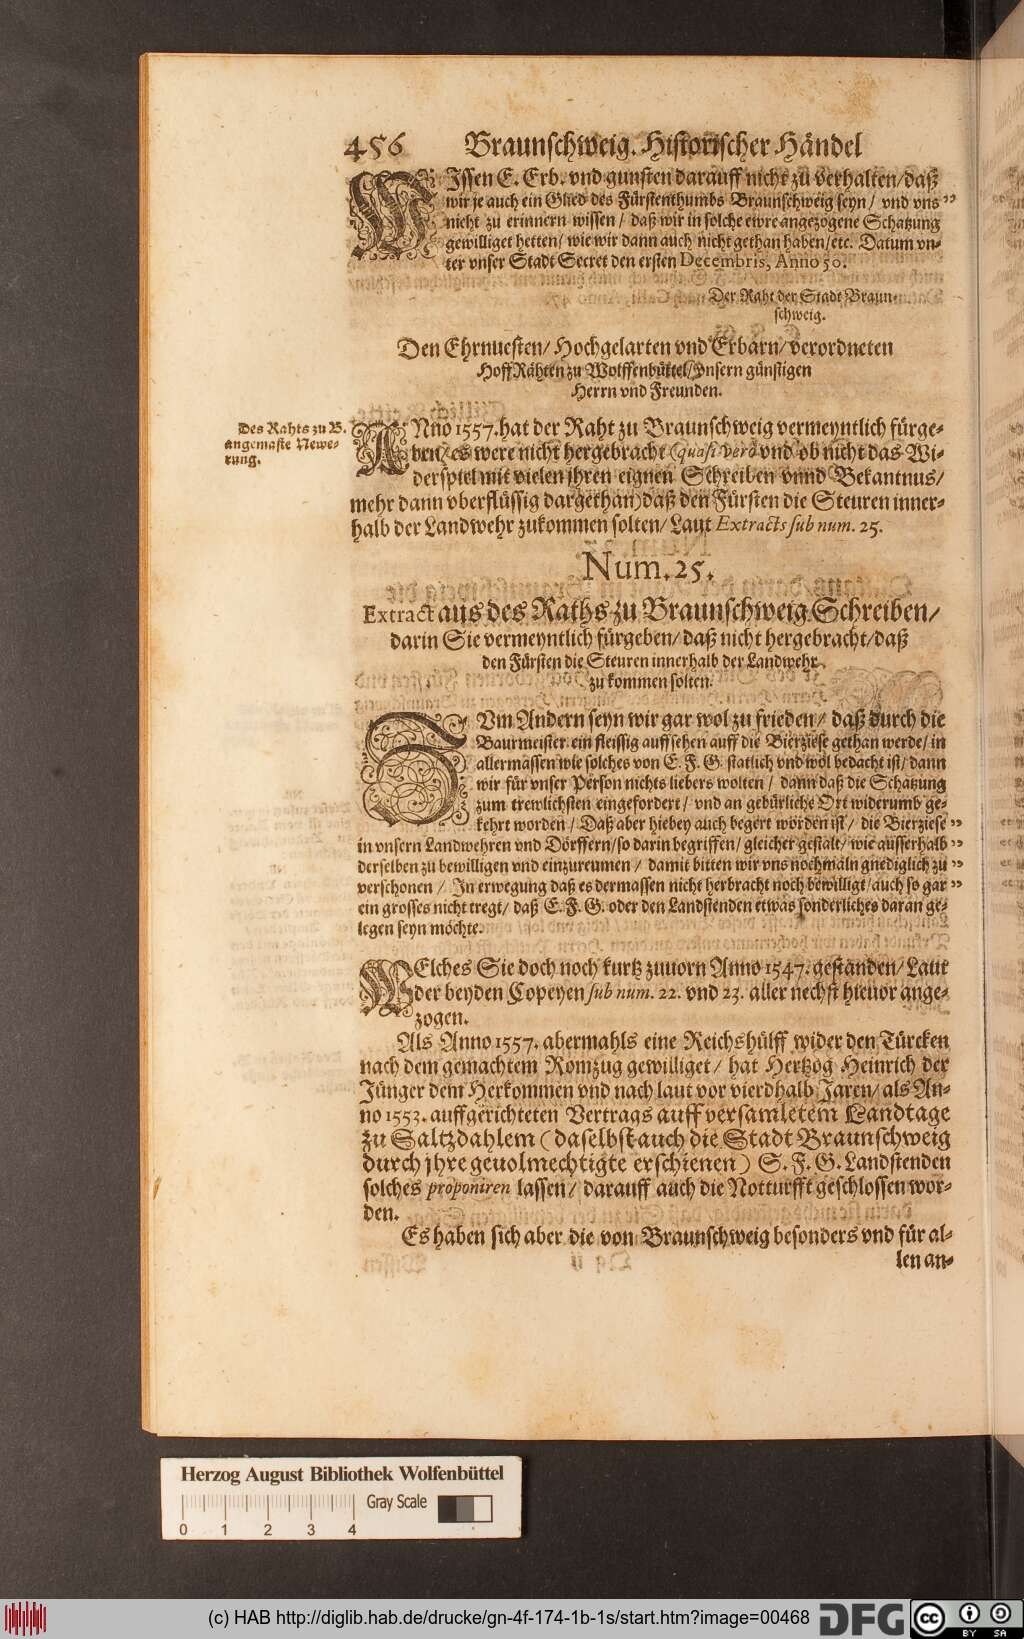 456 Braunschweig. Historischer Händel
WIssen E. Erb. vnd gunsten darauff nicht zu verhalten/daß
wir je auch ein Glied des Fürstenthumbs Braunschweig seyn/ vnd vns ”
nicht zu erinnern wissen/ daß wir in solche ewre angezogene Schatzung
gewilliget hetten/ wie wir dann auch nicht gethan haben/etc. Datum vn-
ter vnser Stadt Secret den ersten Decembris, Anno 50.
Der Raht der Stadt Braun-
schweig.
Den Ehrnuesten/ Hochgelarten vnd Erbarn/ verordneten
HoffRähten zu Wolffenbüttel/ vnsern günstigen
Herrn vnd Freunden.
Des Rahts zu B.
angemaste Newe-
rung.
ANno 1557. hat der Raht zu Braunschweig vermeyntlich fürge-
ben/ es were nicht hergebracht (quasi verò vnd ob nicht das Wi-
derspiel mit vielen jhren eignen Schreiben vnnd Bekantnus/
mehr dann vberflüssig dargethan) daß den Fürsten die Steuren inner-
halb der Landwehr zukommen solten/ Laut Extracts sub num. 25.
Num. 25.
Extract aus des Raths zu Braunschweig Schreiben/
darin Sie vermeyntlich fürgeben/ daß nicht hergebracht/daß
den Fürsten die Steuren innerhalb der Landwehr
zu kommen solten.
ZVm Andern seyn wir gar wol zu frieden/ daß durch die
Baurmeister ein fleissig auffsehen auff die Bierziese gethan werde/ in
allermassen wie solches von E. F. G. statlich vnd wol bedacht ist/ dann
wir für vnser Person nichts liebers wolten/ dann daß die Schatzung
zum trewlichsten eingefordert/ vnd an gebürliche Ort widerumb ge-
kehrt worden/ Daß aber hiebey auch begert worden ist/ die Bierziese ”
in vnsern Landwehren vnd Dörffern/so darin begriffen/ gleicher gestalt/ wie ausserhalb ”
derselben zu bewilligen vnd einzureumen/ damit bitten wir vns nochmaln gnediglich zu ”
verschonen/ In erwegung daß es dermassen nicht herbracht noch bewilligt/auch so gar ”
ein grosses nicht tregt/ daß E. F. G. oder den Landstenden etwas sonderliches daran ge-
legen seyn möchte.
WElches Sie doch noch kurtz zuuorn Anno 1547. gestanden/ Laut
der beyden Copeyen sub num. 22. vnd 23. aller nechst hieuor ange-
zogen.
Als Anno 1557. abermahls eine Reichshülff wider den Türcken
nach dem gemachtem Romzug gewilliget/ hat Hertzog Heinrich der
Jünger dem Herkommen vnd nach laut vor vierdhalb Jaren/ als An-
no 1553. auffgerichteten Vertrags auff versamletem Landtage
zu Saltzdahlem (daselbst auch die Stadt Braunschweig
durch jhre geuolmechtigte erschienen) S. F. G. Landstenden
solches proponiren lassen/ darauff auch die Notturfft geschlossen wor-
den.
Es haben sich aber die von Braunschweig besonders vnd für al-
len an-
Herzog August Bibliothek Wolfenbüttel
Gray Scale
0 1 2 3 4
(c) HAB http://diglib.hab.de/drucke/gn-4f-174-1b-1s/start.htm?image=00468 DFG cc BY SA